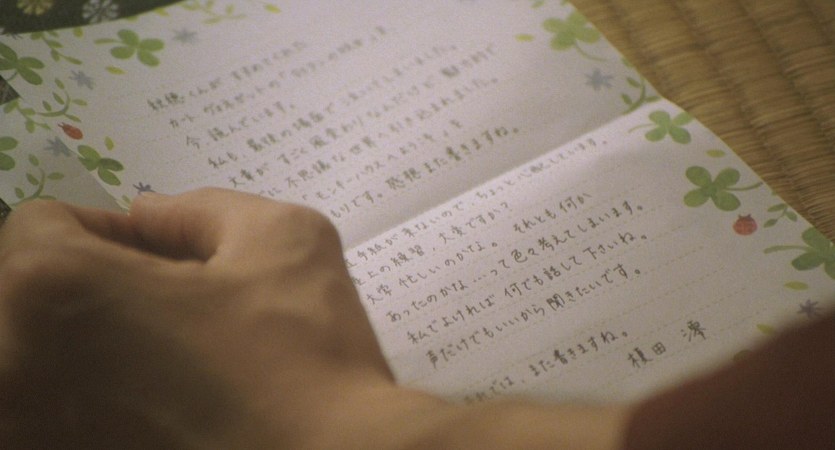 くんがすすめてくれた
カート・ヴォネガットの「
今、読んでいます。
私も、最後の場面で
文章がすごく風変わりなんだけど、魅力的で
不思議な世界へ引き込まれました。
「モンキーハウスへようこそ」を
もりです。感想また書きますね。
手紙が来ないので、ちょっと心配しています。
陸上の練習、大変ですか？
大学忙しいのかな。それとも何か
あったのかな…って色々考えてしまいます。
私でよければ何でも話して下さいね。
声だけでもいいから聞きたいです。
それでは、また書きますね。
横田 澪